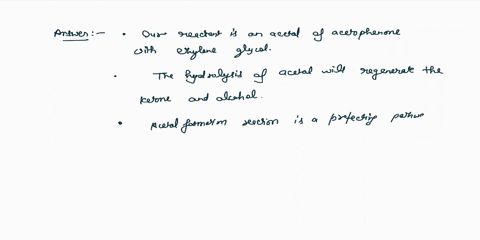 Answer:- • Our reactant is an acetal of acetophenone
with ethylene glycol.
• The hydrolysis of acetal will regenerate the
ketone and alcohol.
• Acetal formation reaction is a